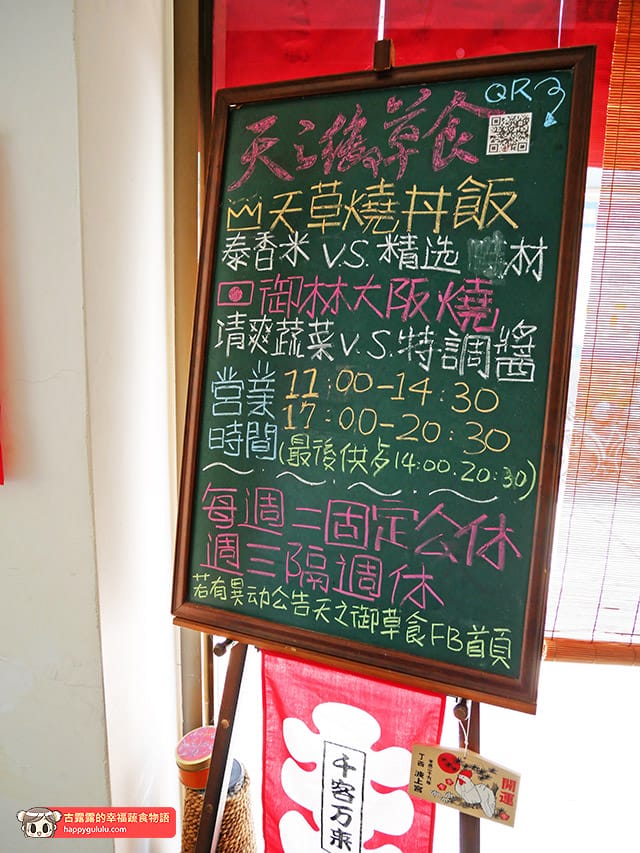 QR
天之御草食
天草燒丼飯
泰香米 V.S. 精选 材
御林大阪燒
清爽蔬菜 V.S. 特調醬
営業 11:00-14:30
時間 17:00-20:30
(最後供点14:00.20:30)
每週二固定公休
週三隔週休
若有異动公告天之御草食FB首頁
千客万来
開運
波上宮
古露露的幸福蔬食物語
happygululu.com